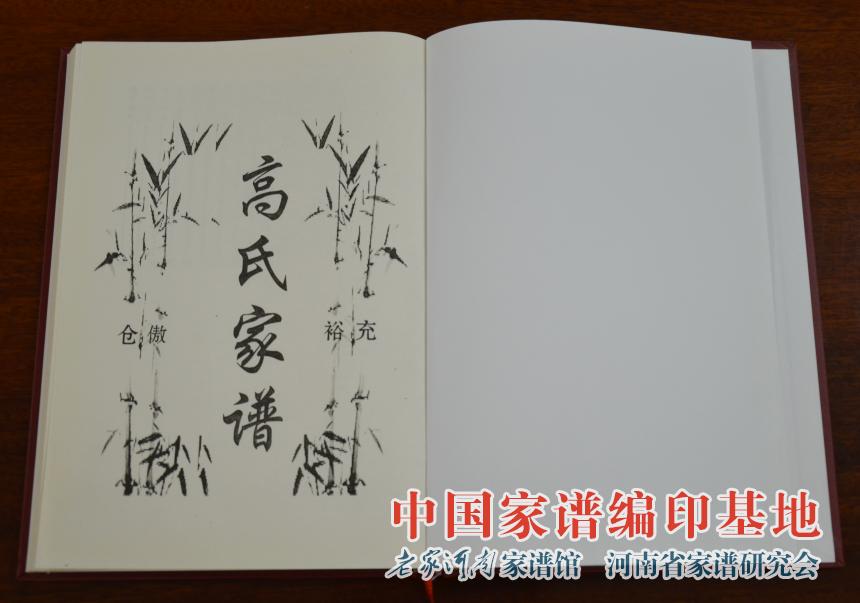 高氏家谱
仓傲
裕充
中国家谱编印基地
老家河南家谱馆 河南省家谱研究会